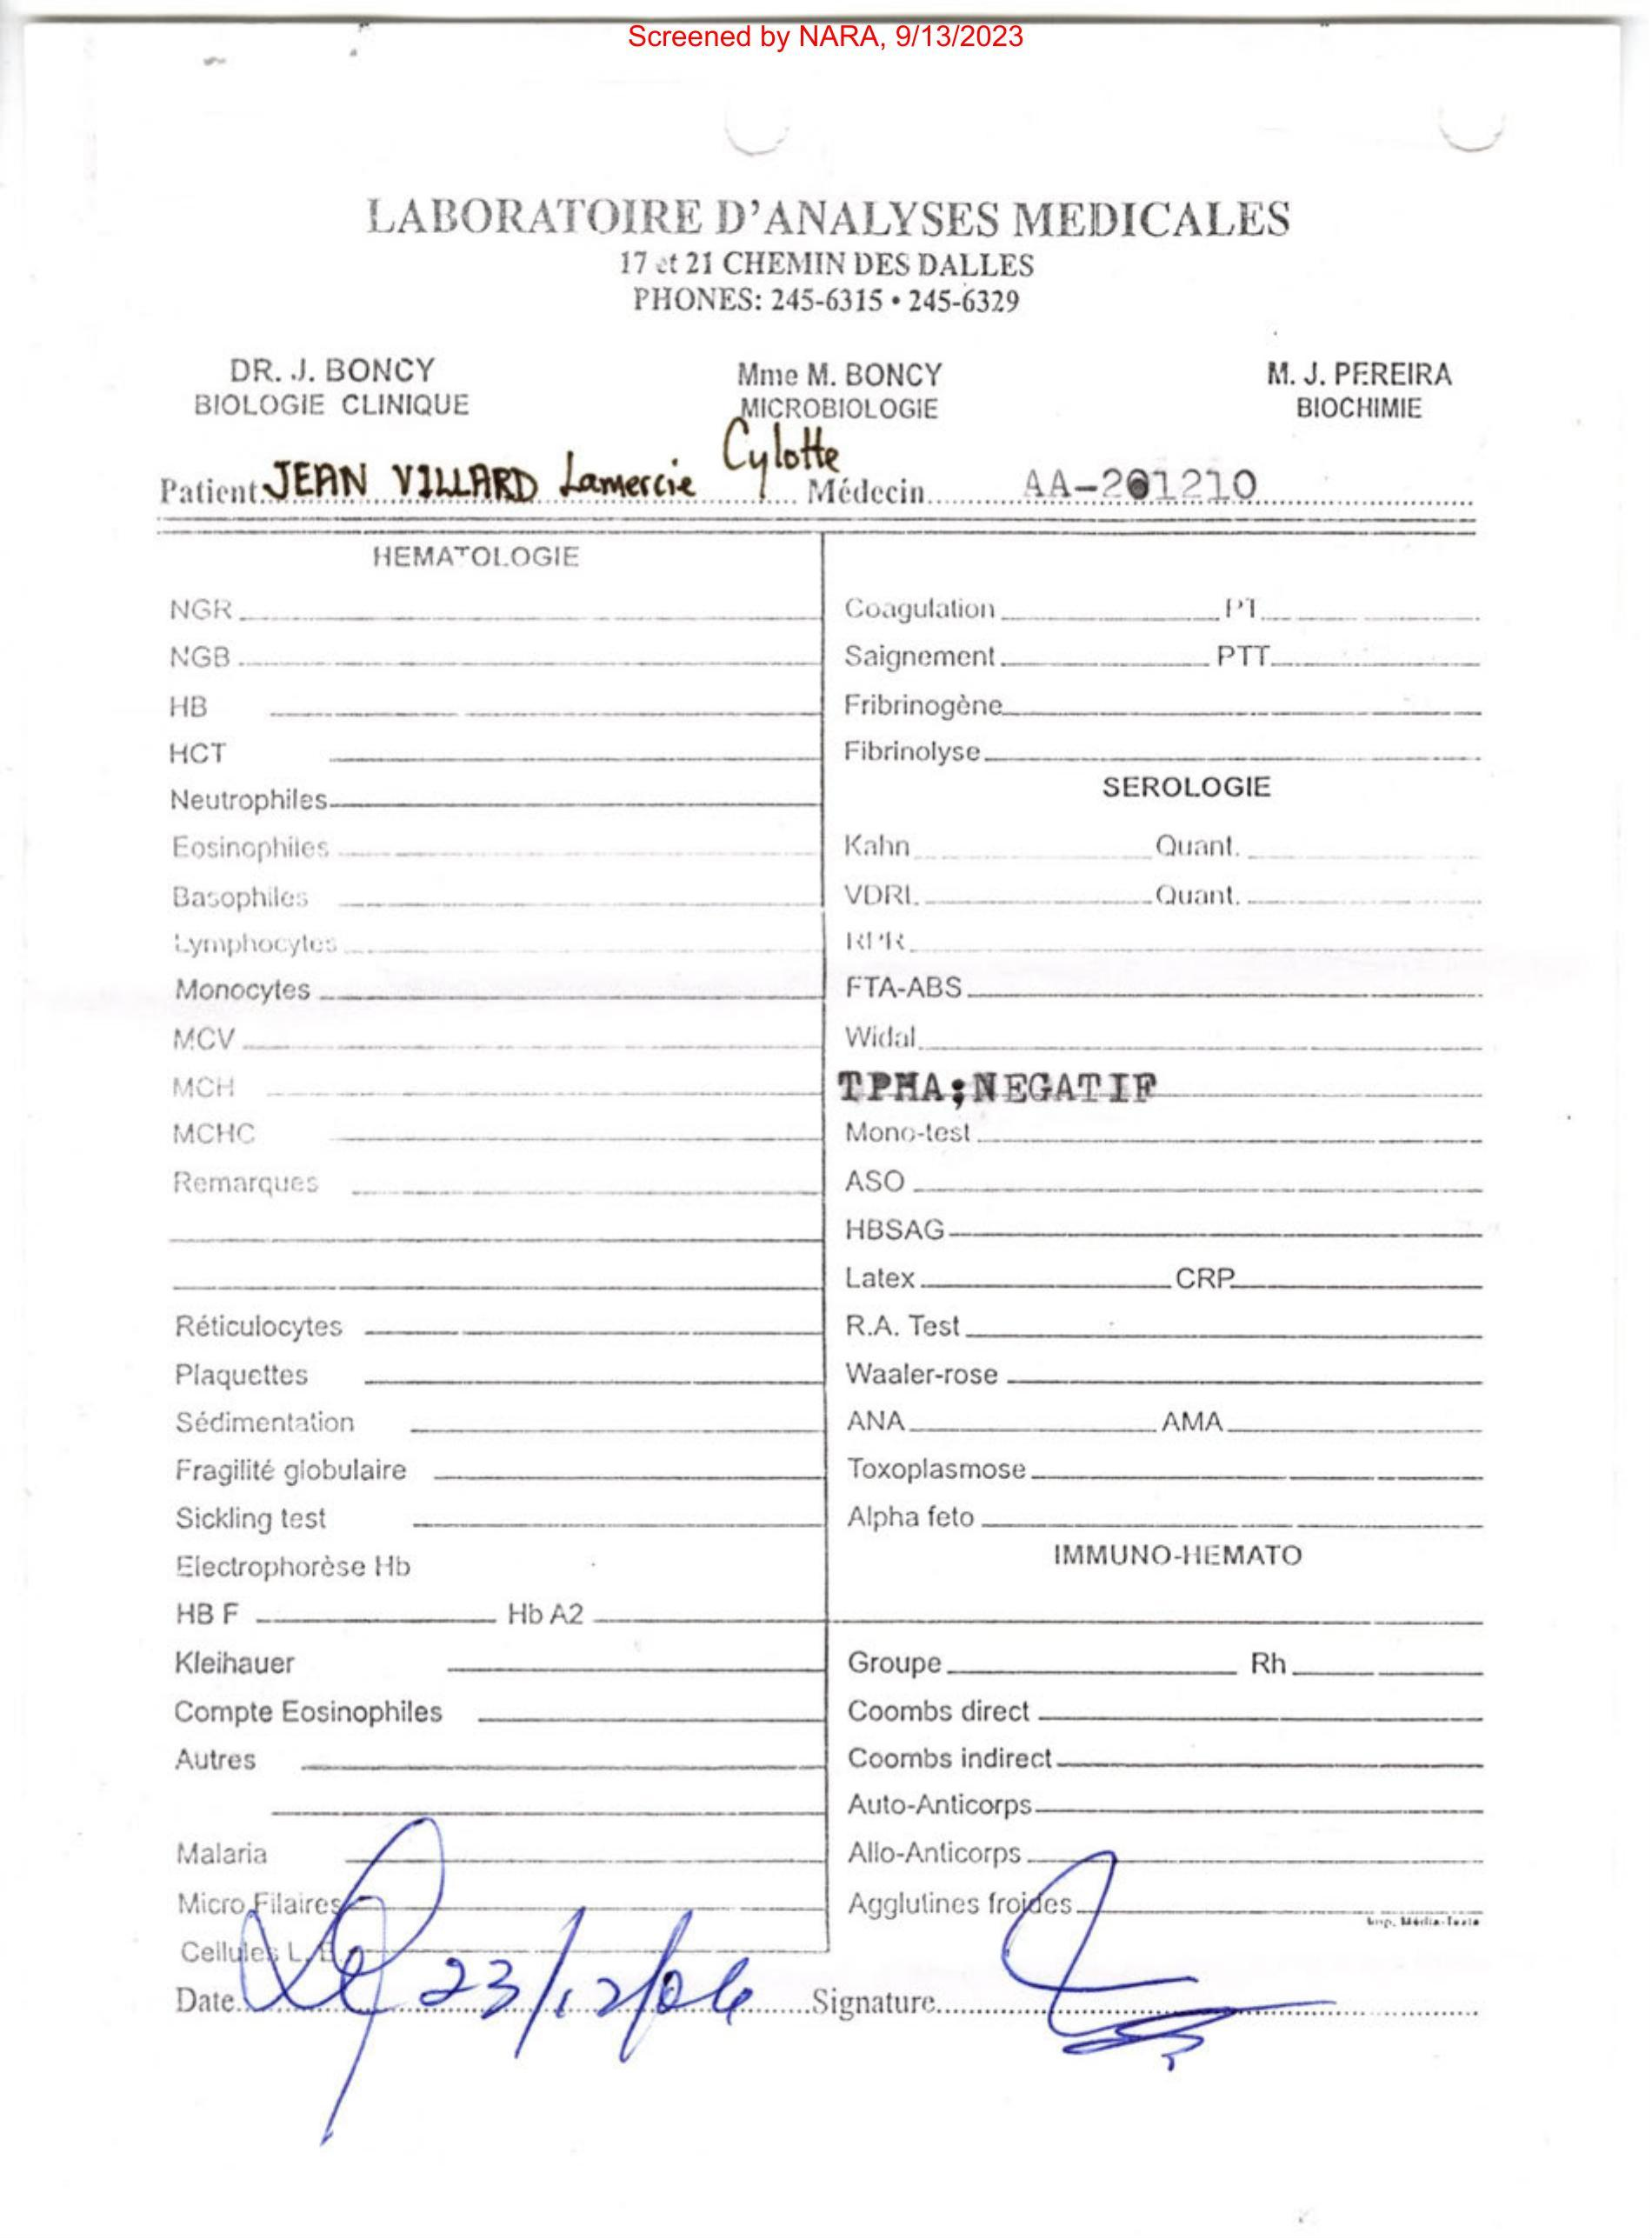 Screened by NARA, 9/13/2023
LABORATOIRE D'ANALYSES MEDICALES
17 et 21 CHEMIN DES DALLES
PHONES: 245-6315 • 245-6329
DR. J. BONCY
BIOLOGIE CLINIQUE
Mme M. BONCY
MICROBIOLOGIE
M. J. PEREIRA
BIOCHIMIE
Patient JEAN VILLARD Lamercie Cylotte Médecin AA-201210
HEMATOLOGIE
NGR
NGB
HB
HCT
Neutrophiles
Eosinophiles
Basophiles
Lymphocytes
Monocytes
MCV
MCH
MCHC
Remarques
Réticulocytes
Plaquettes
Sédimentation
Fragilité globulaire
Sickling test
Electrophorèse Hb
HB F Hb A2
Kleihauer
Compte Eosinophiles
Autres
Malaria
Micro Filaires
Cellules L.
Coagulation PT
Saignement PTT
Fribrinogène
Fibrinolyse
SEROLOGIE
Kahn Quant.
VDRL Quant.
RPR
FTA-ABS
Widal
TPHA;NEGATIF
Mono-test
ASO
HBSAG
Latex CRP
R.A. Test
Waaler-rose
ANA AMA
Toxoplasmose
Alpha feto
IMMUNO-HEMATO
Groupe Rh
Coombs direct
Coombs indirect
Auto-Anticorps
Allo-Anticorps
Agglutines froides
Imp. Média-Texte
Date 23/12/04 Signature